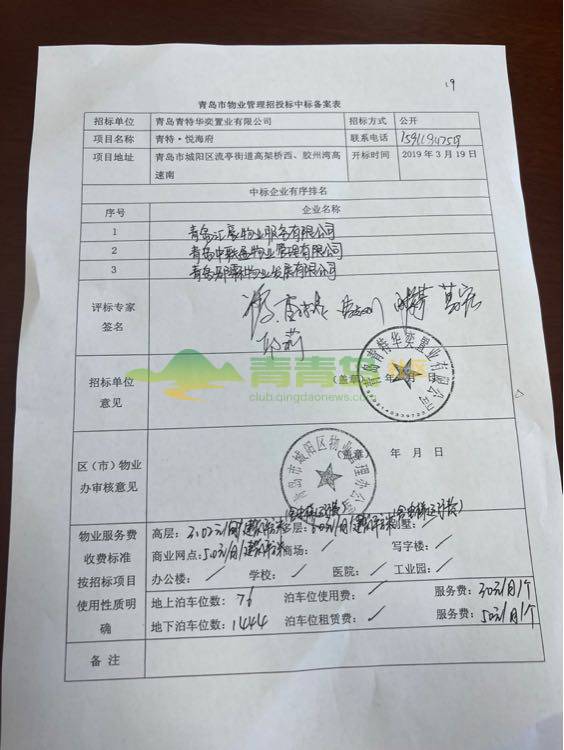 19
青岛市物业管理招投标中标备案表
招标单位 青岛青特华奕置业有限公司 招标方式 公开
项目名称 青特·悦海府 联系电话
项目地址 青岛市城阳区流亭街道高架桥西、胶州湾高 开标时间 2019年3月19日
速南
中标企业有序排名
序号 企业名称
1 青岛汇豪物业服务有限公司
2 青岛中联盛物业管理有限公司
3 青岛 物业发展有限公司
评标专家
签名
招标单位
意见
(盖章) 年 月 日
青岛青特华奕置业有限公司
青青岛社区
club.qingdaonews.com
区(市)物业
办审核意见
(盖章) 年 月 日
青岛市城阳区物业管理办公室
物业服务费
收费标准
按招标项目
使用性质明
确
高层: 元/月/建筑平米 层: 元/月/建筑平米 别墅:/
商业网点:5.0元/月/建筑平米 商场:/ 写字楼:/
办公楼:/ 学校:/ 医院:/ 工业园:/
地上泊车位数:76 泊车位使用费:/ 服务费:30元/月/个
地下泊车位数:1444 泊车位租赁费:/ 服务费:50元/月/个
备 注